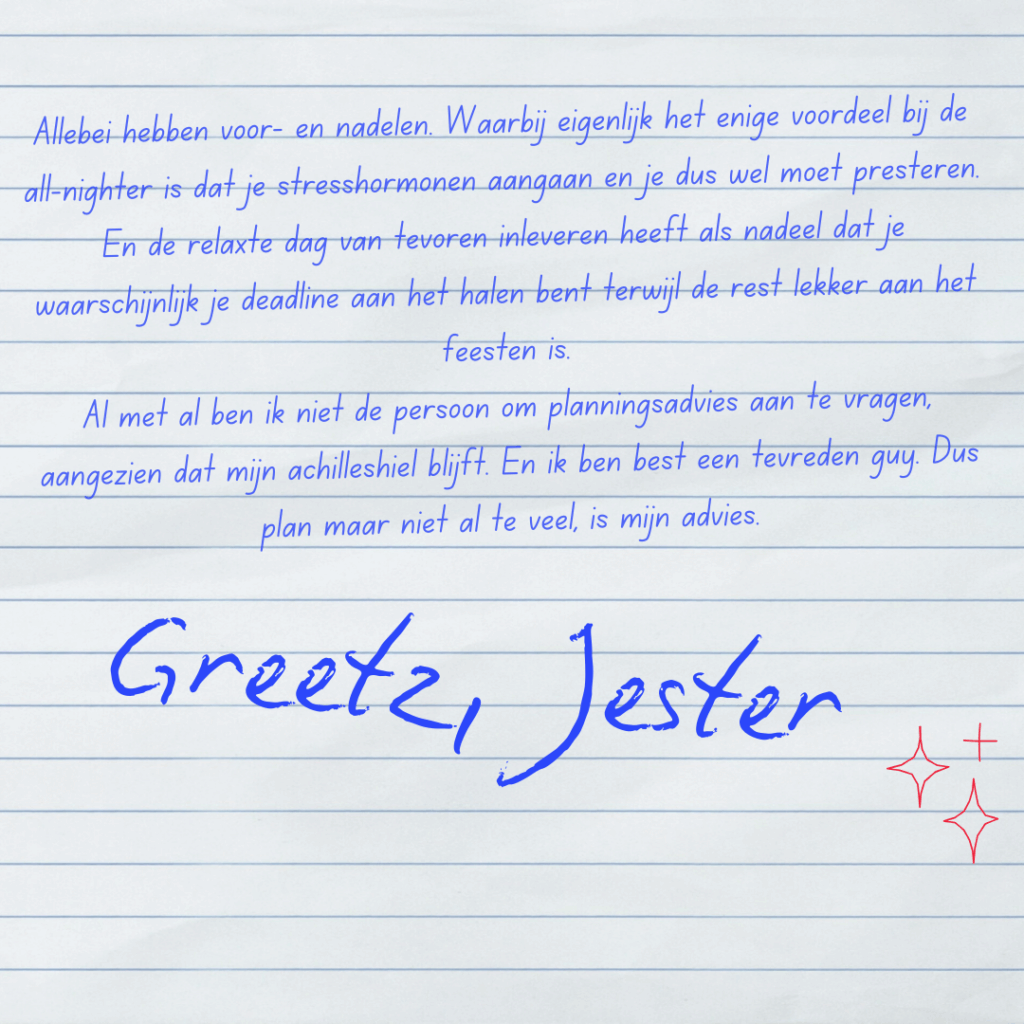 Allebei hebben voor- en nadelen. Waarbij eigenlijk het enige voordeel bij de
all-nighter is dat je stresshormonen aangaan en je dus wel moet presteren.
En de relaxte dag van tevoren inleveren heeft als nadeel dat je
waarschijnlijk je deadline aan het halen bent terwijl de rest lekker aan het
feesten is.
Al met al ben ik niet de persoon om planningsadvies aan te vragen,
aangezien dat mijn achilleshiel blijft. En ik ben best een tevreden guy. Dus
plan maar niet al te veel, is mijn advies.
Greetz, Jester